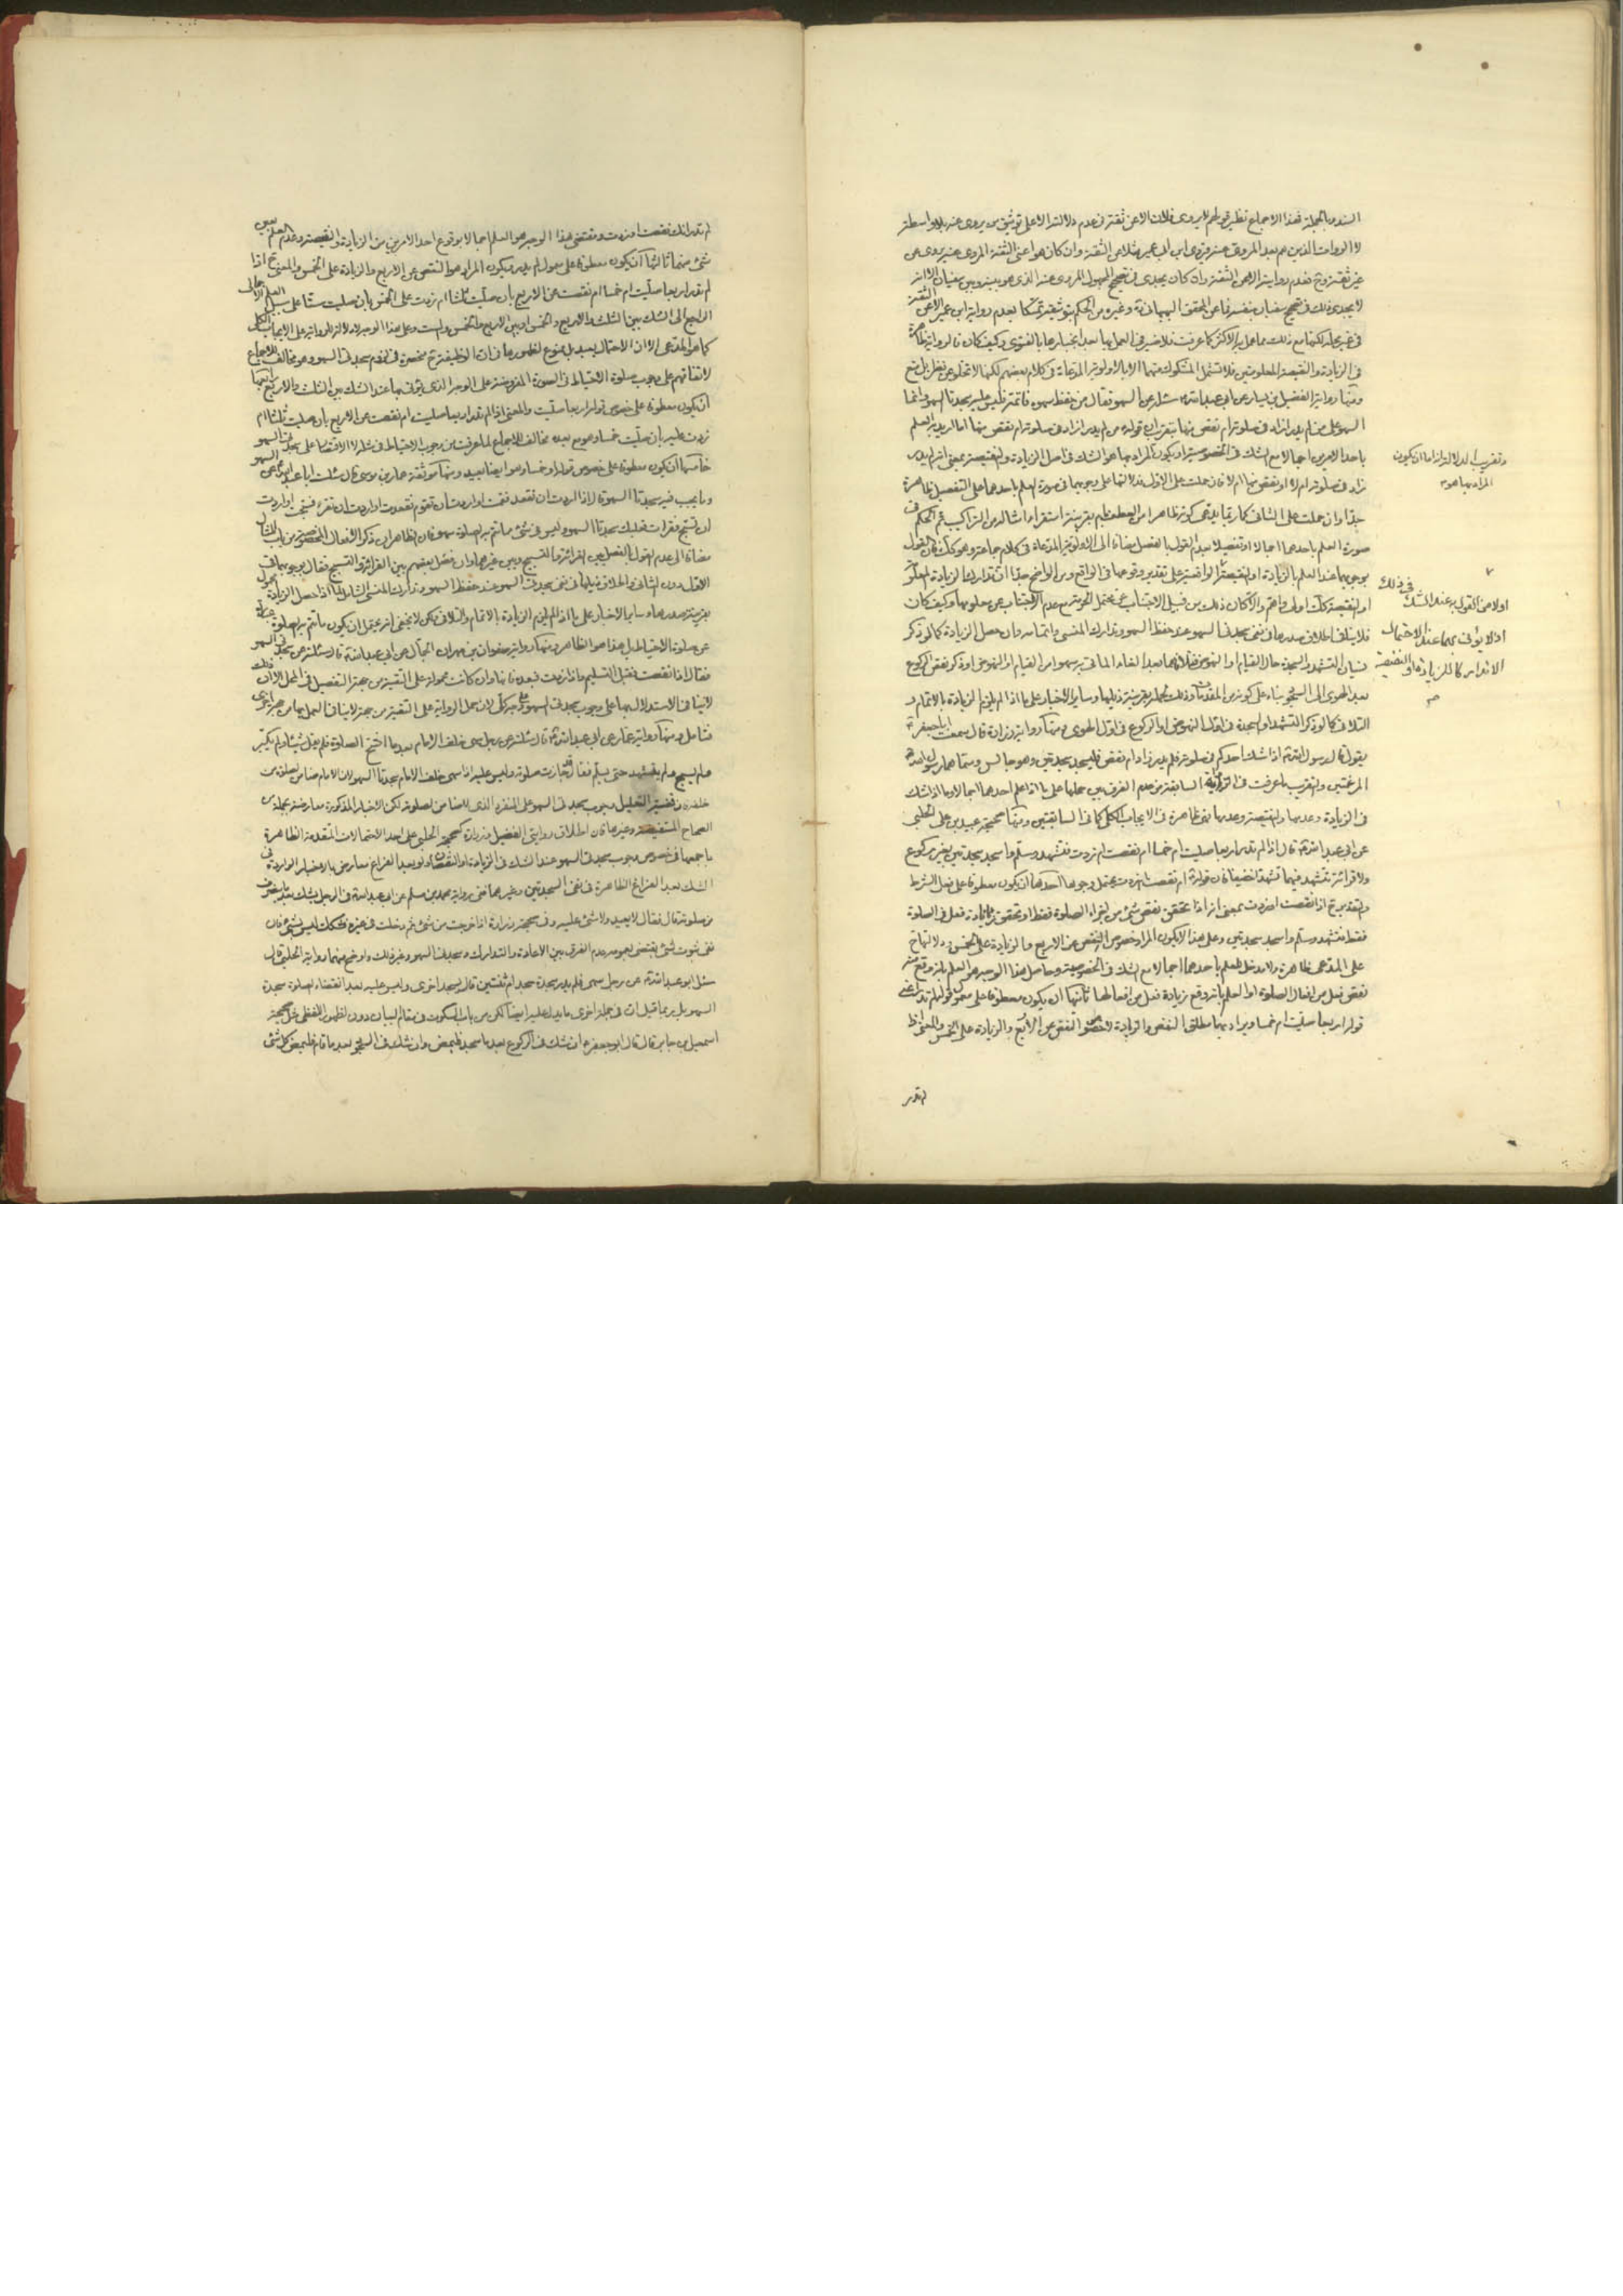 السند وبالجملة فهذا الاجماع نظير قولهم لا يروى فلان الا عن ثقة في عدم دلالته الا على توثيق من يروى عنه بلا واسطة
لا الروات الذين هم بعد المروى عنه فروى ابن ابى عمير مثلا عن الثقة وان كان هو اعنى الثقة المروى عنه يروى عن
غير ثقة وح فعدم روايته الا عن الثقة وان كان يجدى في تصحيح المجهول المروى عنه الذى هو بينه وبين سفيان الا انه
لا يجدى ذلك في تصحيح سفيان بنفسه فا عن المحقق البهبهانى وغيره من الحكم بتوثيقه تمسكا بعدم رواية ابن عمير الا عن الثقة
في غير محله لكنها مع ذلك مما عمل به الاكثر كما عرفت فلا ضير في العمل بها بعد انجبارها بالفتوى وكيف كان فالرواية ظاهرة
في الزيادة والنقيصة المعلومتين فلا تشمل المشكوك منهما الا بالاولوية المدعاة في كلام بعضهم لكنها لا تخلو عن نظر بل منع
ومنها رواية الفضيل بن يسار عن ابى عبد الله سئله عن السهو فقال من حفظ سهوه فاتمه فليس عليه سجدتا السهو وانما
السهو على من لم يدر ازاد في صلوته ام نقص منها بتقريب ان قوله من لم يدر ازاد في صلوته ام نقص منها اما اريد به العلم
باحد الامرين اجمالا مع الشك في الخصوصية او يكون المراد بها هو الشك في اصل الزيادة والنقيصة بمعنى انه لم يدر
زاد في صلوته ام لا او نقص منها ام لا فان حملت على الاول فدلالتها على وجوبها في صورة العلم باحدهما على التفصيل ظاهرة
جدا وان حملت على الثانى كما ربما يدعى كونه ظاهرا من العطف بام بقرينة استقراء امثاله من التراكيب فم الحكم في
صورة العلم باحدهما اجمالا او تفصيلا بعدم القول بالفصل مضافا الى الاولوية المدعاة في كلام جماعة وهو كك فان القول
بوجوبها عند العلم بالزيادة او النقيصة الواقعية على تقدير وقوعها في الواقع ومن الواضح جدا ان تدارك الزيادة المعلومة
او النقيصة كك اولى واهم والا كان ذلك من قبيل الاجتناب عن محتمل الحرمة مع عدم الاجتناب عن معلومها وكيف كان
فلا ينافى اطلاق صدرها في نفى سجدتى السهو عند حفظ السهو وتدارك المنسى واتمامه وان حصل الزيادة كما لو ذكر
نسيان التشهد والسجدة حال القيام او النهوض
بعد الهوى الى السجود بناء على كونه من المقدمات
التلافى كما لو ذكر التشهد او السجدة في اول النهوض او الركوع في اول الهوى ومنها رواية زرارة قال سمعت ابا جعفر
يقول قال رسول الله اذا شك احدكم في صلوته فلم يدر زاد ام نقص فليسجد سجدتين وهو جالس وسماهما رسول الله
المرغمتين والتقريب ما عرفت في الرواية السابقة من عدم الفرق بين حملها على ما اذا علم احدهما اجمالا وما اذا شك
في الزيادة وعدمها والنقيصة وعدمها فهى ظاهرة في الايجاب الكلى كما في السابقتين ومنها صحيحة عبيد بن على الحلبى
عن ابى عبد الله قال اذا لم تدر اربعا صليت ام خمسا ام نقصت ام زدت فتشهد وسلم واسجد سجدتين بغير ركوع
ولا قرائة تتشهد فيهما تشهدا خفيفا فان قوله ام نقصت ام زدت يحتمل وجوها احدها ان يكون معطوفا على فعل الشرط
والتقدير ح اذا نقصت او زدت بمعنى انه اذا تحقق نقص شئ من اجزاء الصلوة فقط او تحقق زيادة فعل في الصلوة
فقط فتشهد وسلم واسجد سجدتين وعلى هذا لا يكون المراد خصوص النقص عن الاربع والزيادة على الخمس ودلالتها ح
على المدعى ظاهرة ولا مدخل للعلم باحدهما اجمالا مع الشك في الخصوصية وحاصل هذا الوجه هو العلم بانه وقع منه
نقص فعل من افعال الصلوة او العلم بانه وقع زيادة فعل من افعالها ثانيها ان يكون معطوفا على معمول قوله لم تدر اعنى
قوله اربعا صليت ام خمسا ويراد بهما مطلق النقص والزيادة لا خصوص النقص عن الاربع والزيادة على الخمس والمعنى اذا
لم تدر
وتقريب الدلالة انه اما ان يكون
المراد بها هو
اولا من القول به عند الشك في ذلك
اذ لا يؤتى بهما عند الاحتمال
الا تداركا للزيادة او النقيصة
لم تدر انك نقصت او زدت ومقتضى هذا الوجه هو العلم اجمالا بوقوع احد الامرين من الزيادة والنقيصة وعدم العلم بعين
شئ منهما ثالثها ان يكون معطوفا على معمول لم يدر ويكون المراد هو النقص عن الاربع والزيادة على الخمس والمعنى ح اذا
لم تدر اربعا صليت ام خمسا ام نقصت عن الاربع بان صليت ثلثا ام زدت على الخمس بان صليت ستا على سبيل العلم الاجمالى
الراجع الى الشك بين الثلث والاربع والخمس او بين الاربع والخمس والست وعلى هذا الوجه لا دلالة للرواية على الايجاب الكلى
كما هو المدعى الا ان الاحتمال بعيد بل ممنوع لظهورها في ان الوظيفة ح منحصرة في لزوم سجدتى السهو وهو مخالف للاجماع
لاتفاقهم على وجوب صلوة الاحتياط في الصورة المفروضة على الوجه الذى يؤتى بها عند الشك بين الثلث والاربع رابعها
ان يكون معطوفا على خصوص قوله اربعا صليت والمعنى اذا لم تدر اربعا صليت ام نقصت عن الاربع بان صليت ثلثا ام
زدت عليه بان صليت خمسا وهو مع بعده مخالف للاجماع لما عرفت من وجوب الاحتياط في مثله لا الاقتصار على سجدتى السهو
خامسها ان يكون معطوفا على خصوص قوله او خمسا وهو ايضا بعيد ومنها موثقة عمار بن موسى قال سئلت ابا عبد الله عن السهو
وما يجب فيه سجدتا السهو قال اذا اردت ان تقعد فقمت او اردت ان تقوم فقعدت او اردت ان تقرء فسبحت او اردت
ان تسبح فقرات فعليك سجدتا السهو وليس في شئ مما تتم به الصلوة سهو فان الظاهر ان ذكر الافعال المخصوصة من باب المثال
مضافا الى عدم القول بالفصل بين القرائة والتسبيح وبين غيرهما وان فصل بعضهم بين القرائة والتسبيح فقال بوجوبها في
الاول دون الثانى
بقرينة صدرها وساير الاخبار على ما اذا لم يلزم الزيادة بالاتمام والتلافى ولكن لا يخفى انه يحتمل ان يكون ما تتم به الصلوة عبارة
عن صلوة الاحتياط بل هذا هو الظاهر ومنها رواية صفوان بن مهران الجمال عن ابى عبد الله قال سئلته عن سجدتى السهو
فقال اذا نقصت فقبل التسليم واذا زدت فبعده فانها وان كانت محمولة على التقية من جهة التفصيل في المحل الا ان ذلك
لا ينافى الاستدلال بها على وجوب سجدتى السهو
فتامل ومنها رواية عمار عن ابى عبد الله قال سئلته عن رجل سهى خلف الامام بعد ما افتتح الصلوة فلم يقل شيئا ولم يكبر
ولم يسبح ولم يتشهد حتى يسلم فقال قد جازت صلوته وليس عليه اذا سهى خلف الامام سجدتا السهو لان الامام ضامن لصلوة من
خلفه وقضية التعليل وجوب سجدتى السهو على المنفرد الذى لا ضامن لصلوته لكن الاخبار المذكورة معارضة بجملة من
الصحاح المستفيضة وغيرها فان اطلاق روايتى الفضيل وزرارة كصحيحة الحلبى على احد الاحتمالات المتقدمة الظاهرة
باجمعها في خصوص وجوب سجدتى السهو عند الشك في الزيادة او النقصان ولو بعد الفراغ معارض بالاخبار الواردة في
الشك بعد الفراغ الظاهرة في نفى السجدتين وغيرهما ففى رواية محمد بن مسلم عن ابى عبد الله في الرجل يشك بعد ما ينصرف
من صلوته قال فقال لا يعيد ولا شئ عليه وفي صحيحة زرارة اذا خرجت من شئ ثم دخلت في غيره فشكك ليس بشئ فان
نفى ثبوت شئ يقتضى بعمومه عدم الفرق بين الاعادة والتدارك وسجدتى السهو وغير ذلك واوضح منهما رواية الحلبى قال
سئل ابو عبد الله عن رجل سهى فلم يدر سجدة سجد ام ثنتين قال يسجد اخرى وليس عليه بعد انقضاء الصلوة سجدتا
السهو بل ربما قيل ان في جملة اخرى ما يدل عليه ايضا لكن من باب السكوت في مقام البيان دون الظهور اللفظى مثل صحيحة
اسمعيل بن جابر قال قال ابو جعفر ان شك في الركوع بعد ما سجد فليمض وان شك في السجود بعد ما قام فليمض كل شئ